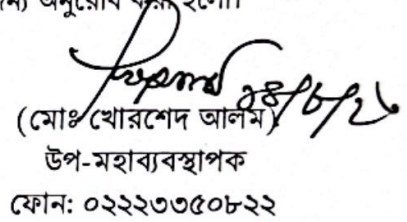 অনুরোধ করা হলো।
২৪/৮/২৬
(মোঃ খোরশেদ আলম)
উপ-মহাব্যবস্থাপক
ফোন: ০২২২৩৩৫০৮২২